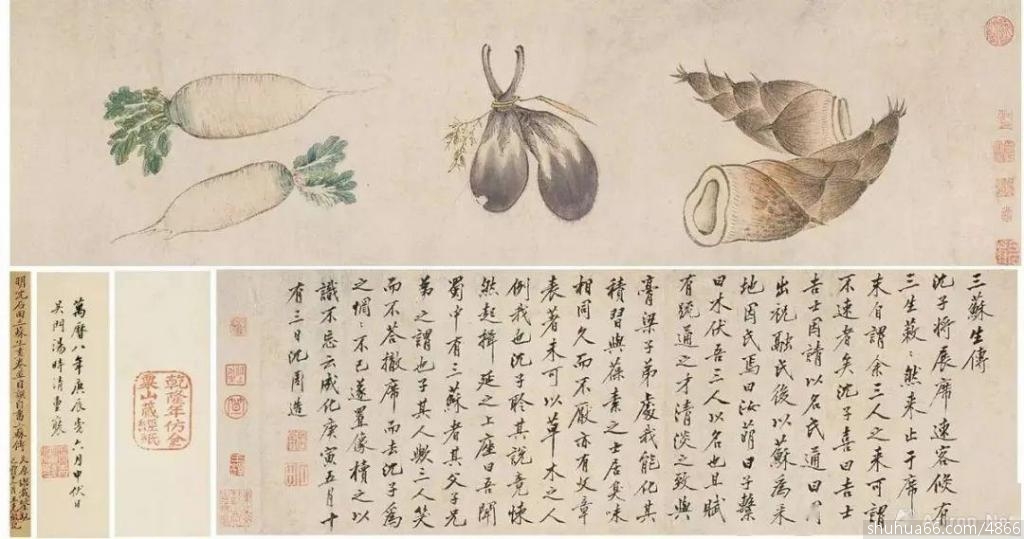 三蘇生傳
沈子將展席速客倏有
三生蔌〻然来止于席
末自謂余三人之来可謂
不速者矣沈子喜曰吉士
吉士因請以名氏通曰
出祝融氏後以蘇為采
地因氏焉曰汝蒻曰子繫
曰水伏吾三人以名也且賦
有疏通之才清淡之致與
膏粱子弟處我能化其
積習與葆素之士居臭味
相同久而不厭亦有文章
表著未可以草木之人
例我也沈子聆其說竟悚
然起揖延之上座曰吾聞
蜀中有三蘇者其父子兄
弟之謂也子其人歟三人笑
而不答撤席而去沈子為
之惘〻不已遂置像之以
識不忘云成化庚寅五月十
有三日沈周造
乾隆年仿金
粟山藏經紙
萬曆八年庚辰六月中伏日
吳門湯時清重裝
明沈石田三蘇生畫卷並自譔自書三蘇傳
shuhua66.com/4866